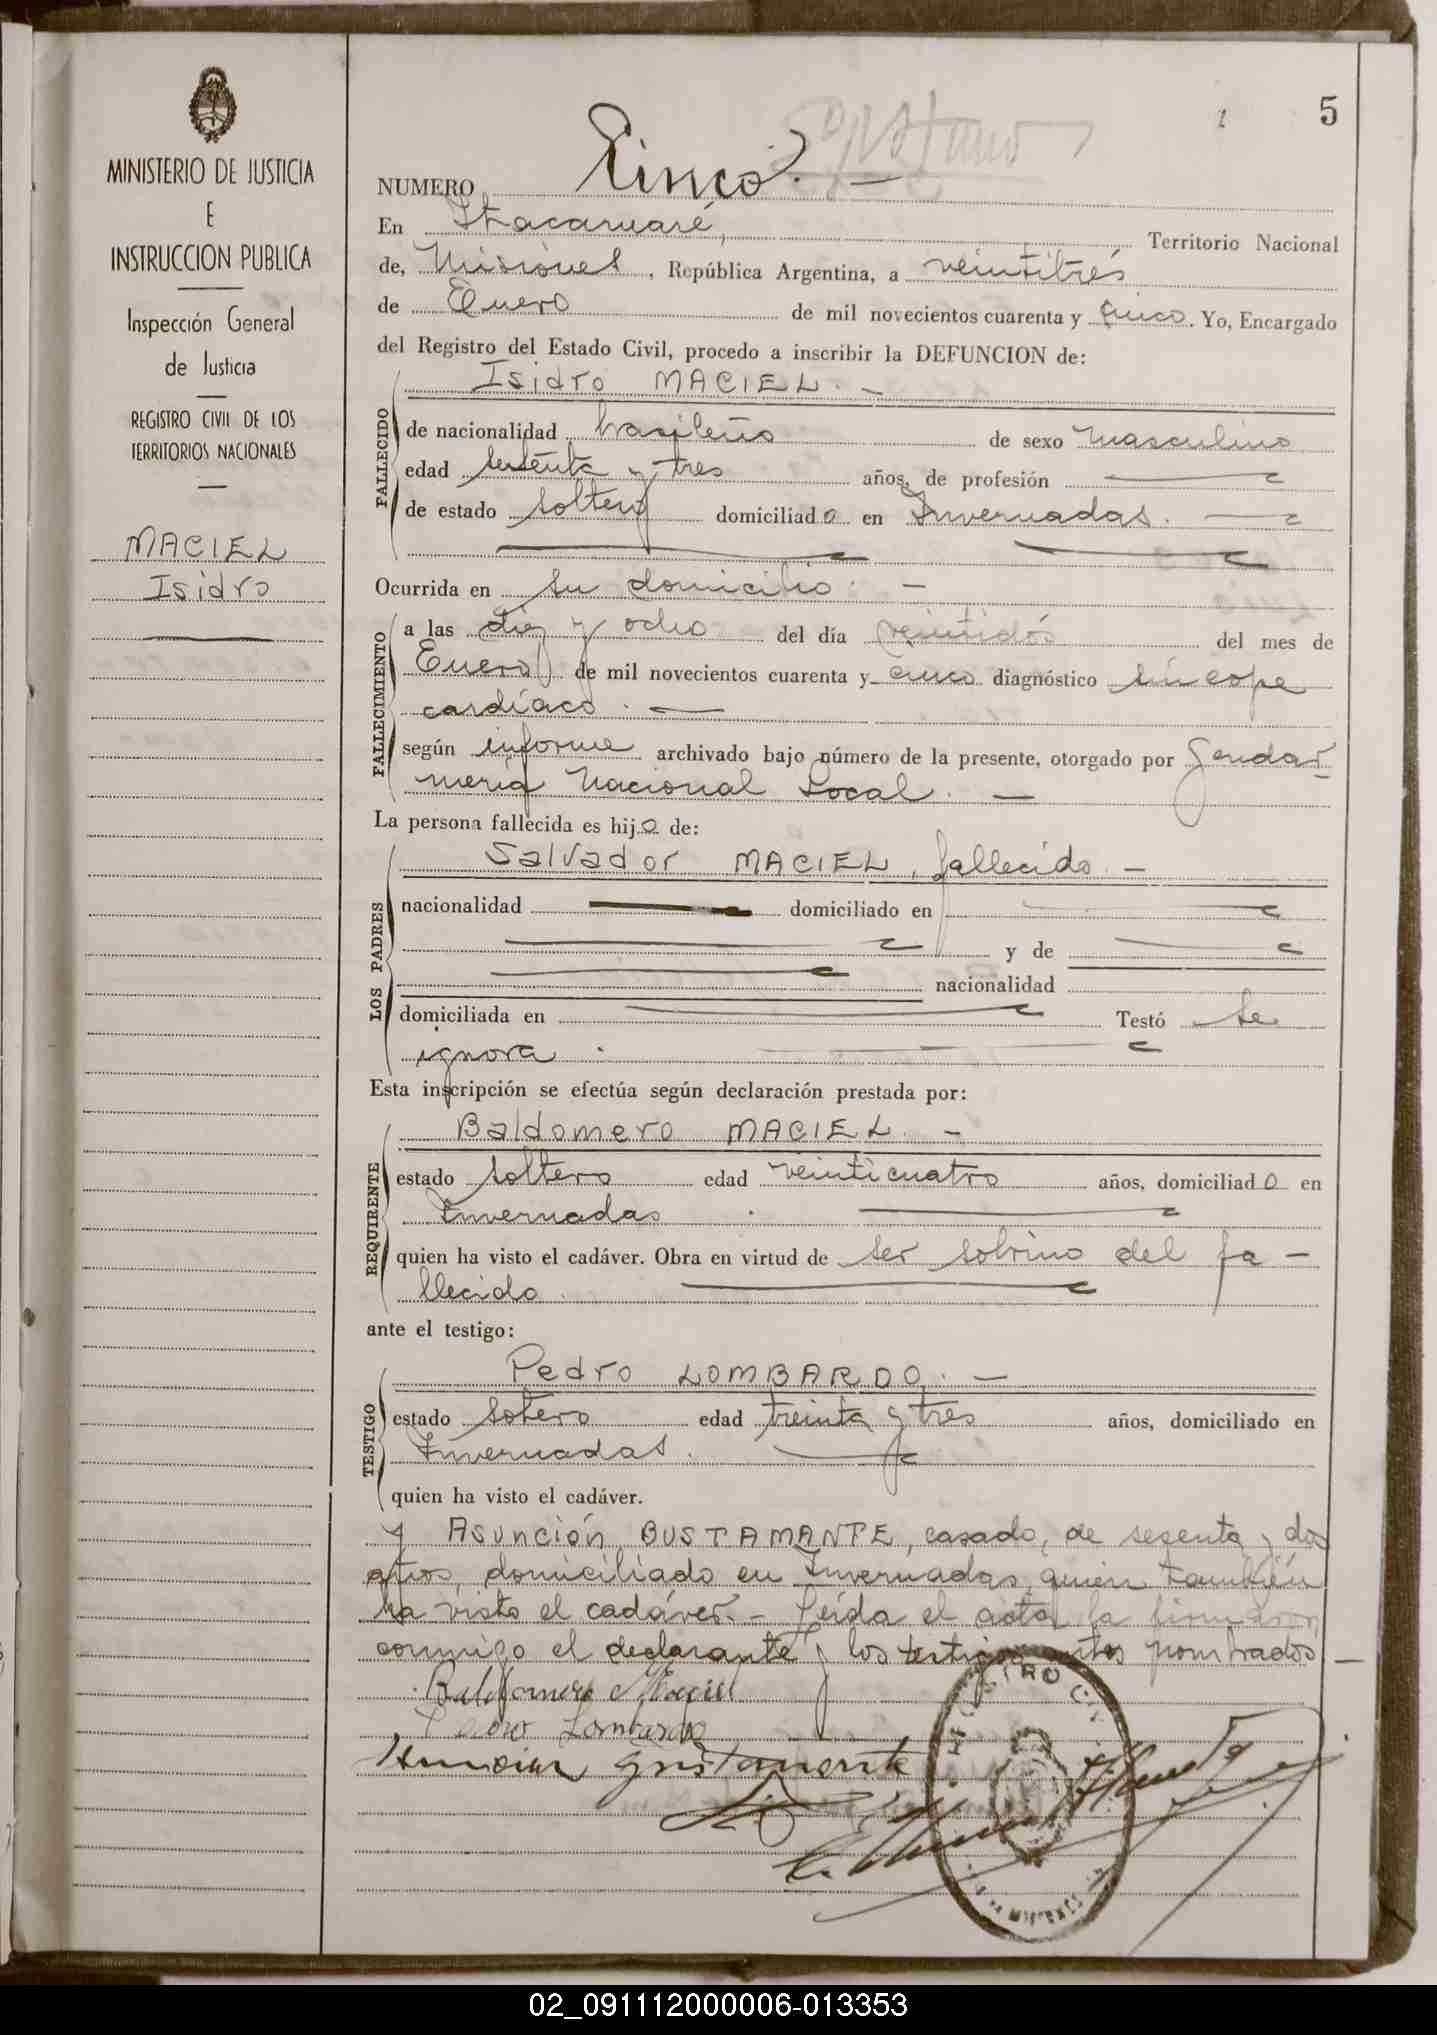 MINISTERIO DE JUSTICIA
E
INSTRUCCION PUBLICA
Inspección General
de Justicia
REGISTRO CIVIL DE LOS
TERRITORIOS NACIONALES
MACIEL
Isidro
5
NUMERO Cinco. —
En Itacaruaré, Territorio Nacional
de, Misiones, República Argentina, a veintitrés
de Enero de mil novecientos cuarenta y cinco. Yo, Encargado
del Registro del Estado Civil, procedo a inscribir la DEFUNCION de:
Isidro MACIEL. —
FALLECIDO
de nacionalidad brasileño de sexo masculino
edad y tres años, de profesión —
de estado soltero domiciliado en Invernadas. —
Ocurrida en su domicilio. —
FALLECIMIENTO
a las diez y ocho del día veintidós del mes de
Enero de mil novecientos cuarenta y cinco diagnóstico síncope
cardíaco. —
según informe archivado bajo número de la presente, otorgado por Gendar-
mería Nacional Local. —
La persona fallecida es hijo de:
LOS PADRES
Salvador MACIEL, fallecido. —
nacionalidad — domiciliado en —
— y de —
— nacionalidad
domiciliada en — Testó se
ignora. —
Esta inscripción se efectúa según declaración prestada por:
REQUIRENTE
Baldomero MACIEL. —
estado soltero edad veinticuatro años, domiciliado en
Invernadas. —
quien ha visto el cadáver. Obra en virtud de ser sobrino del fa-
llecido. —
ante el testigo:
TESTIGO
Pedro LOMBARDO. —
estado sotero edad treinta y tres años, domiciliado en
Invernadas. —
quien ha visto el cadáver.
y Asunción BUSTAMANTE, casado, de sesenta y dos
años, domiciliado en Invernadas, quien también
ha visto el cadáver. — Leída el acta la firmaron
conmigo el declarante y los testigos antes nombrados —
Baldomero Maciel
Pedro Lombardo
REGISTRO CIVIL
MISIONES
02_091112000006-013353